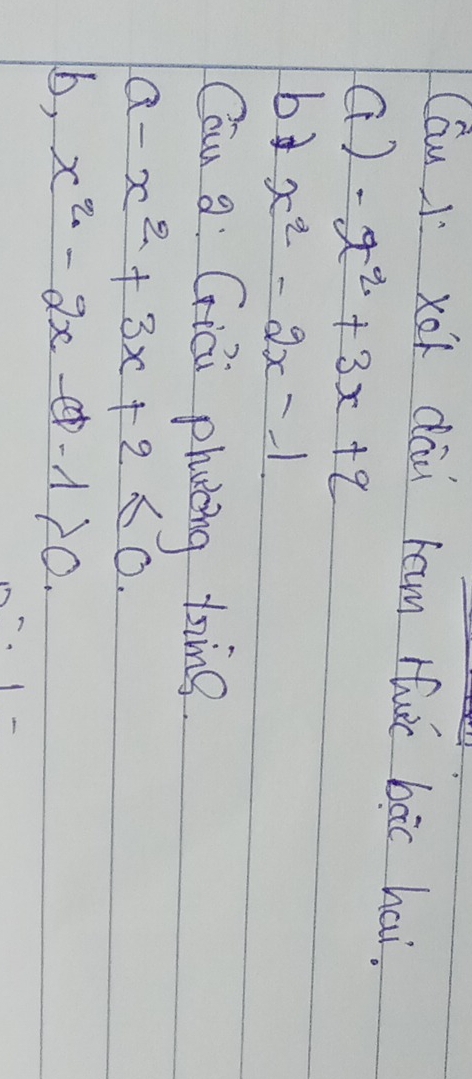 Câu 1: xét dấu tam thức bậc hai.
a) - x² + 3x + 2
b) x² - 2x - 1
Câu 2: Giải phương trình
a - x² + 3x + 2 < 0.
b, x² - 2x - 1 > 0.